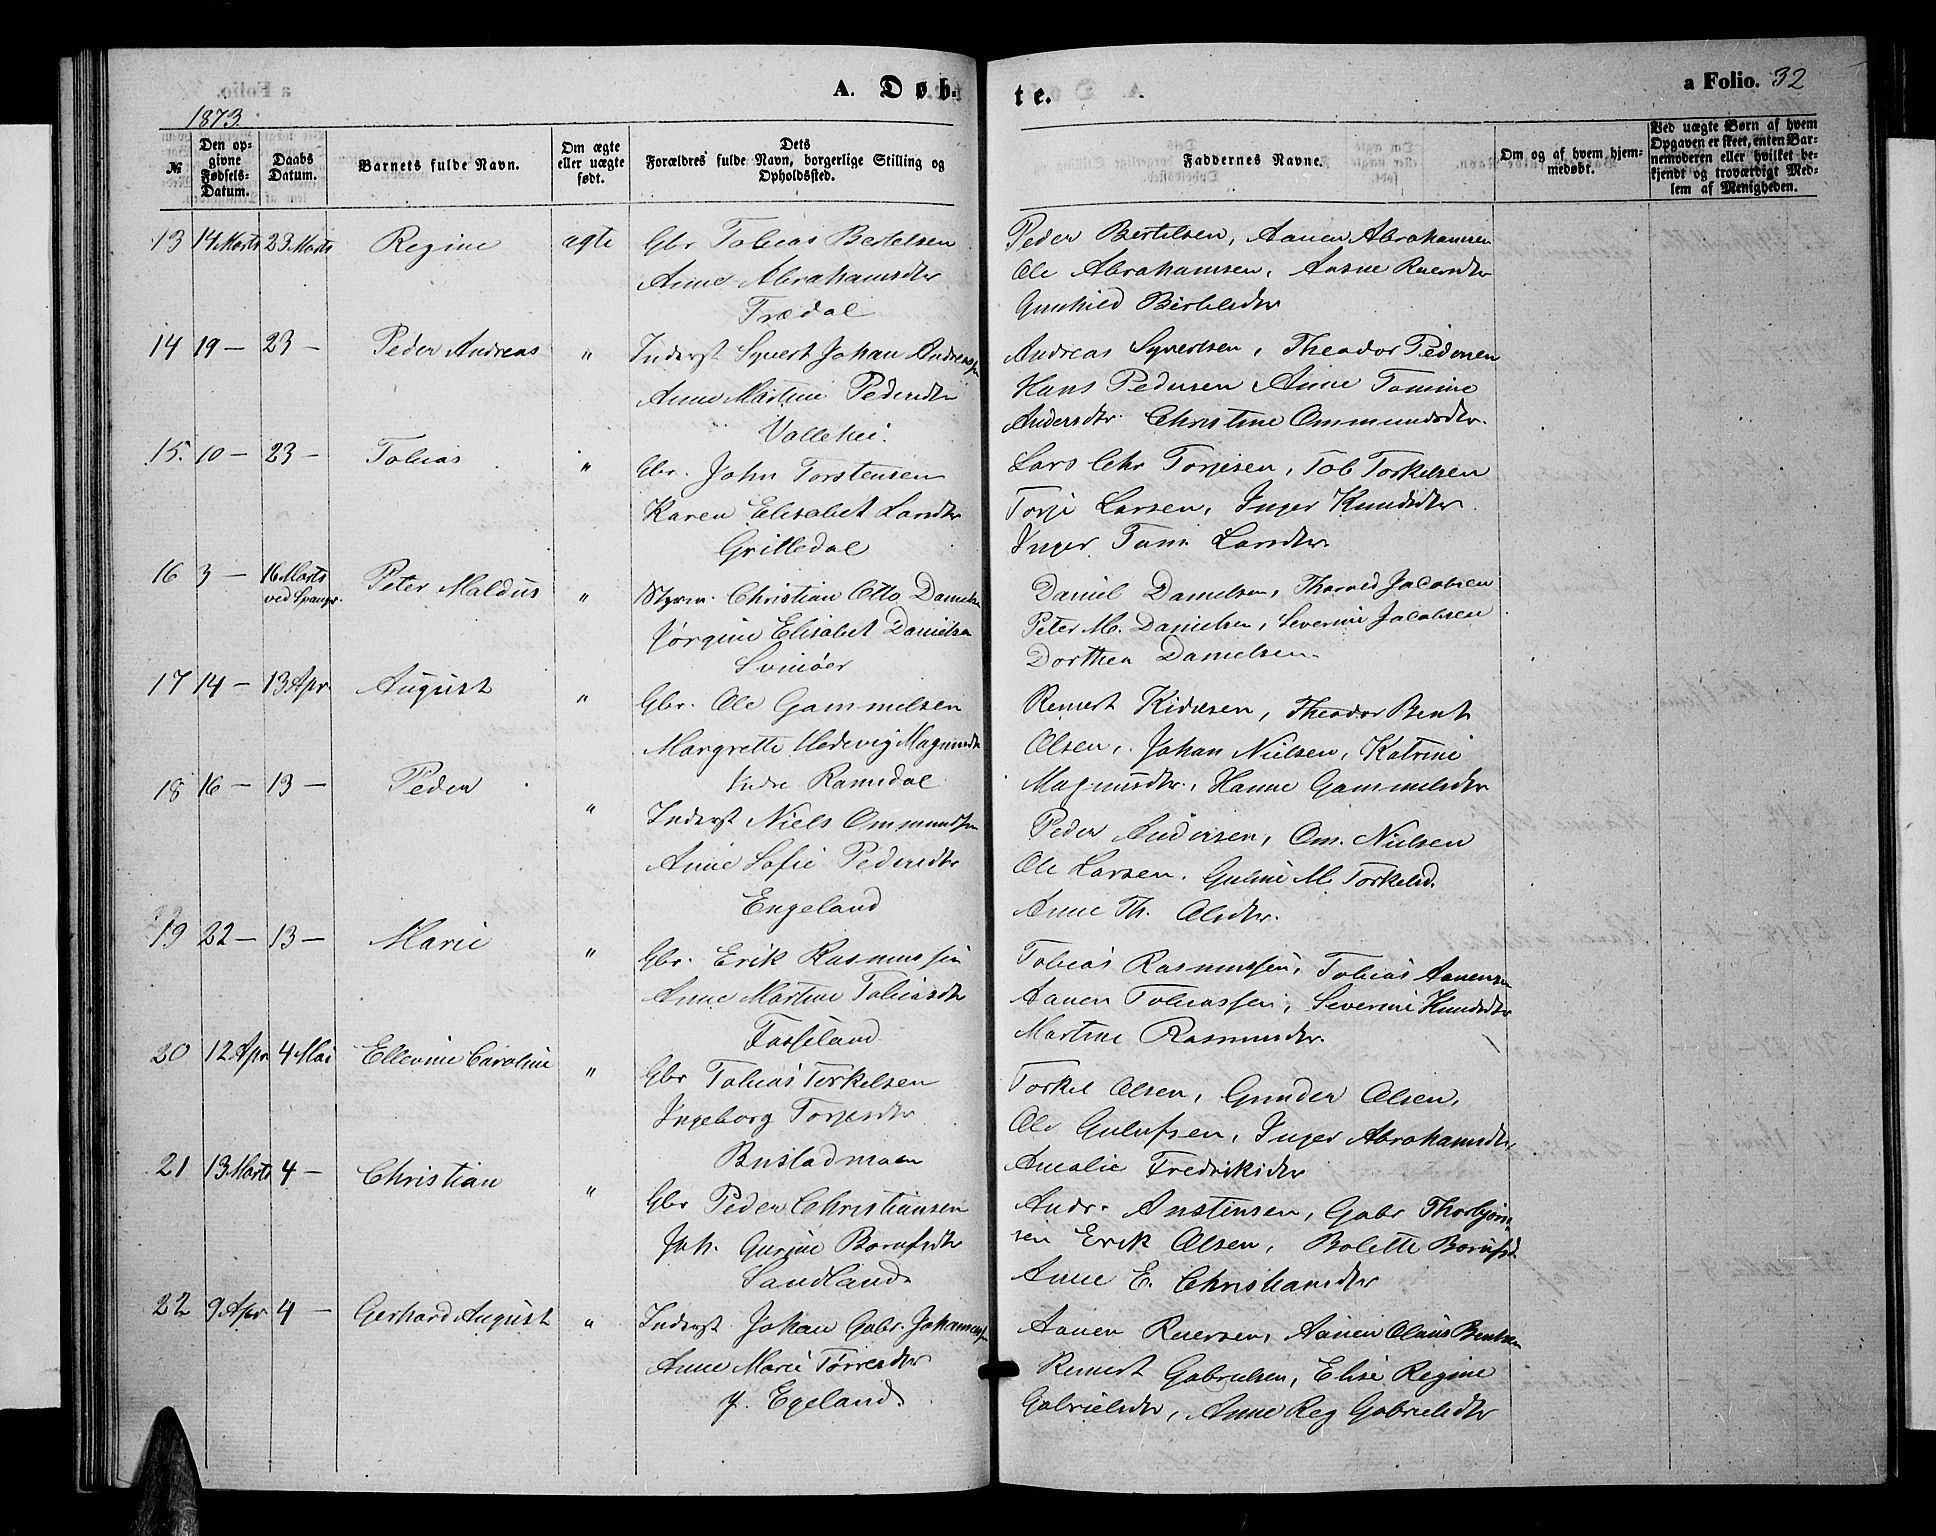 A. Døb-
te.
a Folio. 32
1873.
№
Den op-
givne
Fødsels-
Datum.
Daabs
Datum.
Barnets fulde Navn.
Om ægte
eller uægte
født.
Dets
Forældres fulde Navn, borgerlige Stilling og
Opholdssted.
Faddernes Navne.
Om og af hvem hjem-
medøbt.
Ved uægte Børn af hvem
Opgaven er skeet, enten Bar-
nemoderen eller hvilket be-
kjendt og troværdigt Med-
lem af Menigheden.
13 14 Marts 23 Marts Regine ægte Gbr Tobias Bertelsen
Anne Abrahamsdtr
Trædal
Peder Bertelsen, Aanen Abrahamsen
Ole Abrahamsen, Aasne Reiersdtr
Gunhild Bertelsdtr
14 19 — 23 — Peder Andreas " Inderst Syvert Johan Andreassen
Anne Martine Pedersdtr
Vollehei.
Andreas Syvertsen, Theodor Pedersen
Hans Pedersen Anne Tomine
Andersdtr. Christine Ommundsdtr.
15. 10 — 23 — Tobias " Gbr. John Torstensen
Karen Elisabet Larsdtr
Grilledal
Lars Chr Torjesen, Tob Torkelsen
Torje Larsen, Inger Knudsdtr.
Inger Larsdtr.
16 3 — 16 Marts
ved Spangr. Peter Maldus " Styrm. Christian Otto Danielsen
Jørgine Elisabet Danielsen
Svinøer
Daniel Danielsen, Tharald Jacobsen
Peter M. Danielsen, Severine Jacobsen
Dorthea Danielsen
17 14 — 13 Apr August " Gbr. Ole Gammelsen
Margrette Hedevig Magnusdtr
Indre Ramsdal
Reinert Theodor Bent
Olsen, Johan Nielsen, Katrine
Magnusdtr., Hanne Gammelsdtr
18 16 — 13 — Peder " Inderst Niels Ommundsen
Anne Sofie Pedersdtr
Engeland
Peder Andersen, Om. Nielsen
Ole Larsen. Guline M. Torkelsd.
Anne Th. Olsdtr.
19 22 — 13 — Marie " Gbr. Erik Rasmussen
Anne Martine Tobiasdtr
Fosseland
Tobias Rasmussen, Tobias Aanensen
Aanen Tobiassen, Severine Knudsdtr
Martine Rasmusdtr.
20 12 Apr 4 Mai Ellevine Caroline " Gbr Tobias Torkelsen
Ingeborg Torjesdtr
Bustadmoen
Torkel Olsen, Gunder Olsen,
Ole Gulufsen, Inger Abrahamsdtr,
Amalie Fredriksdtr
21 13 Marts 4 — Christian " Gbr Peder Christiansen
Joh. Gurine Bornfsdtr
Sandland
Andr. Anstensen, Gabr Thorbjørn-
sen Erik Olsen, Bolette
Anne E. Christiansdtr
22 9 Apr 4 — Gerhard August " Inderst Johan Gabr. Johannessen
Anne Marie Tørresdtr
y. Egeland
Aanen Reiersen, Aanen Olaus Bentsen
Reinert Gabrielsen, Elise Regine
Gabrielsdtr, Anne Reg Gabrielsdtr